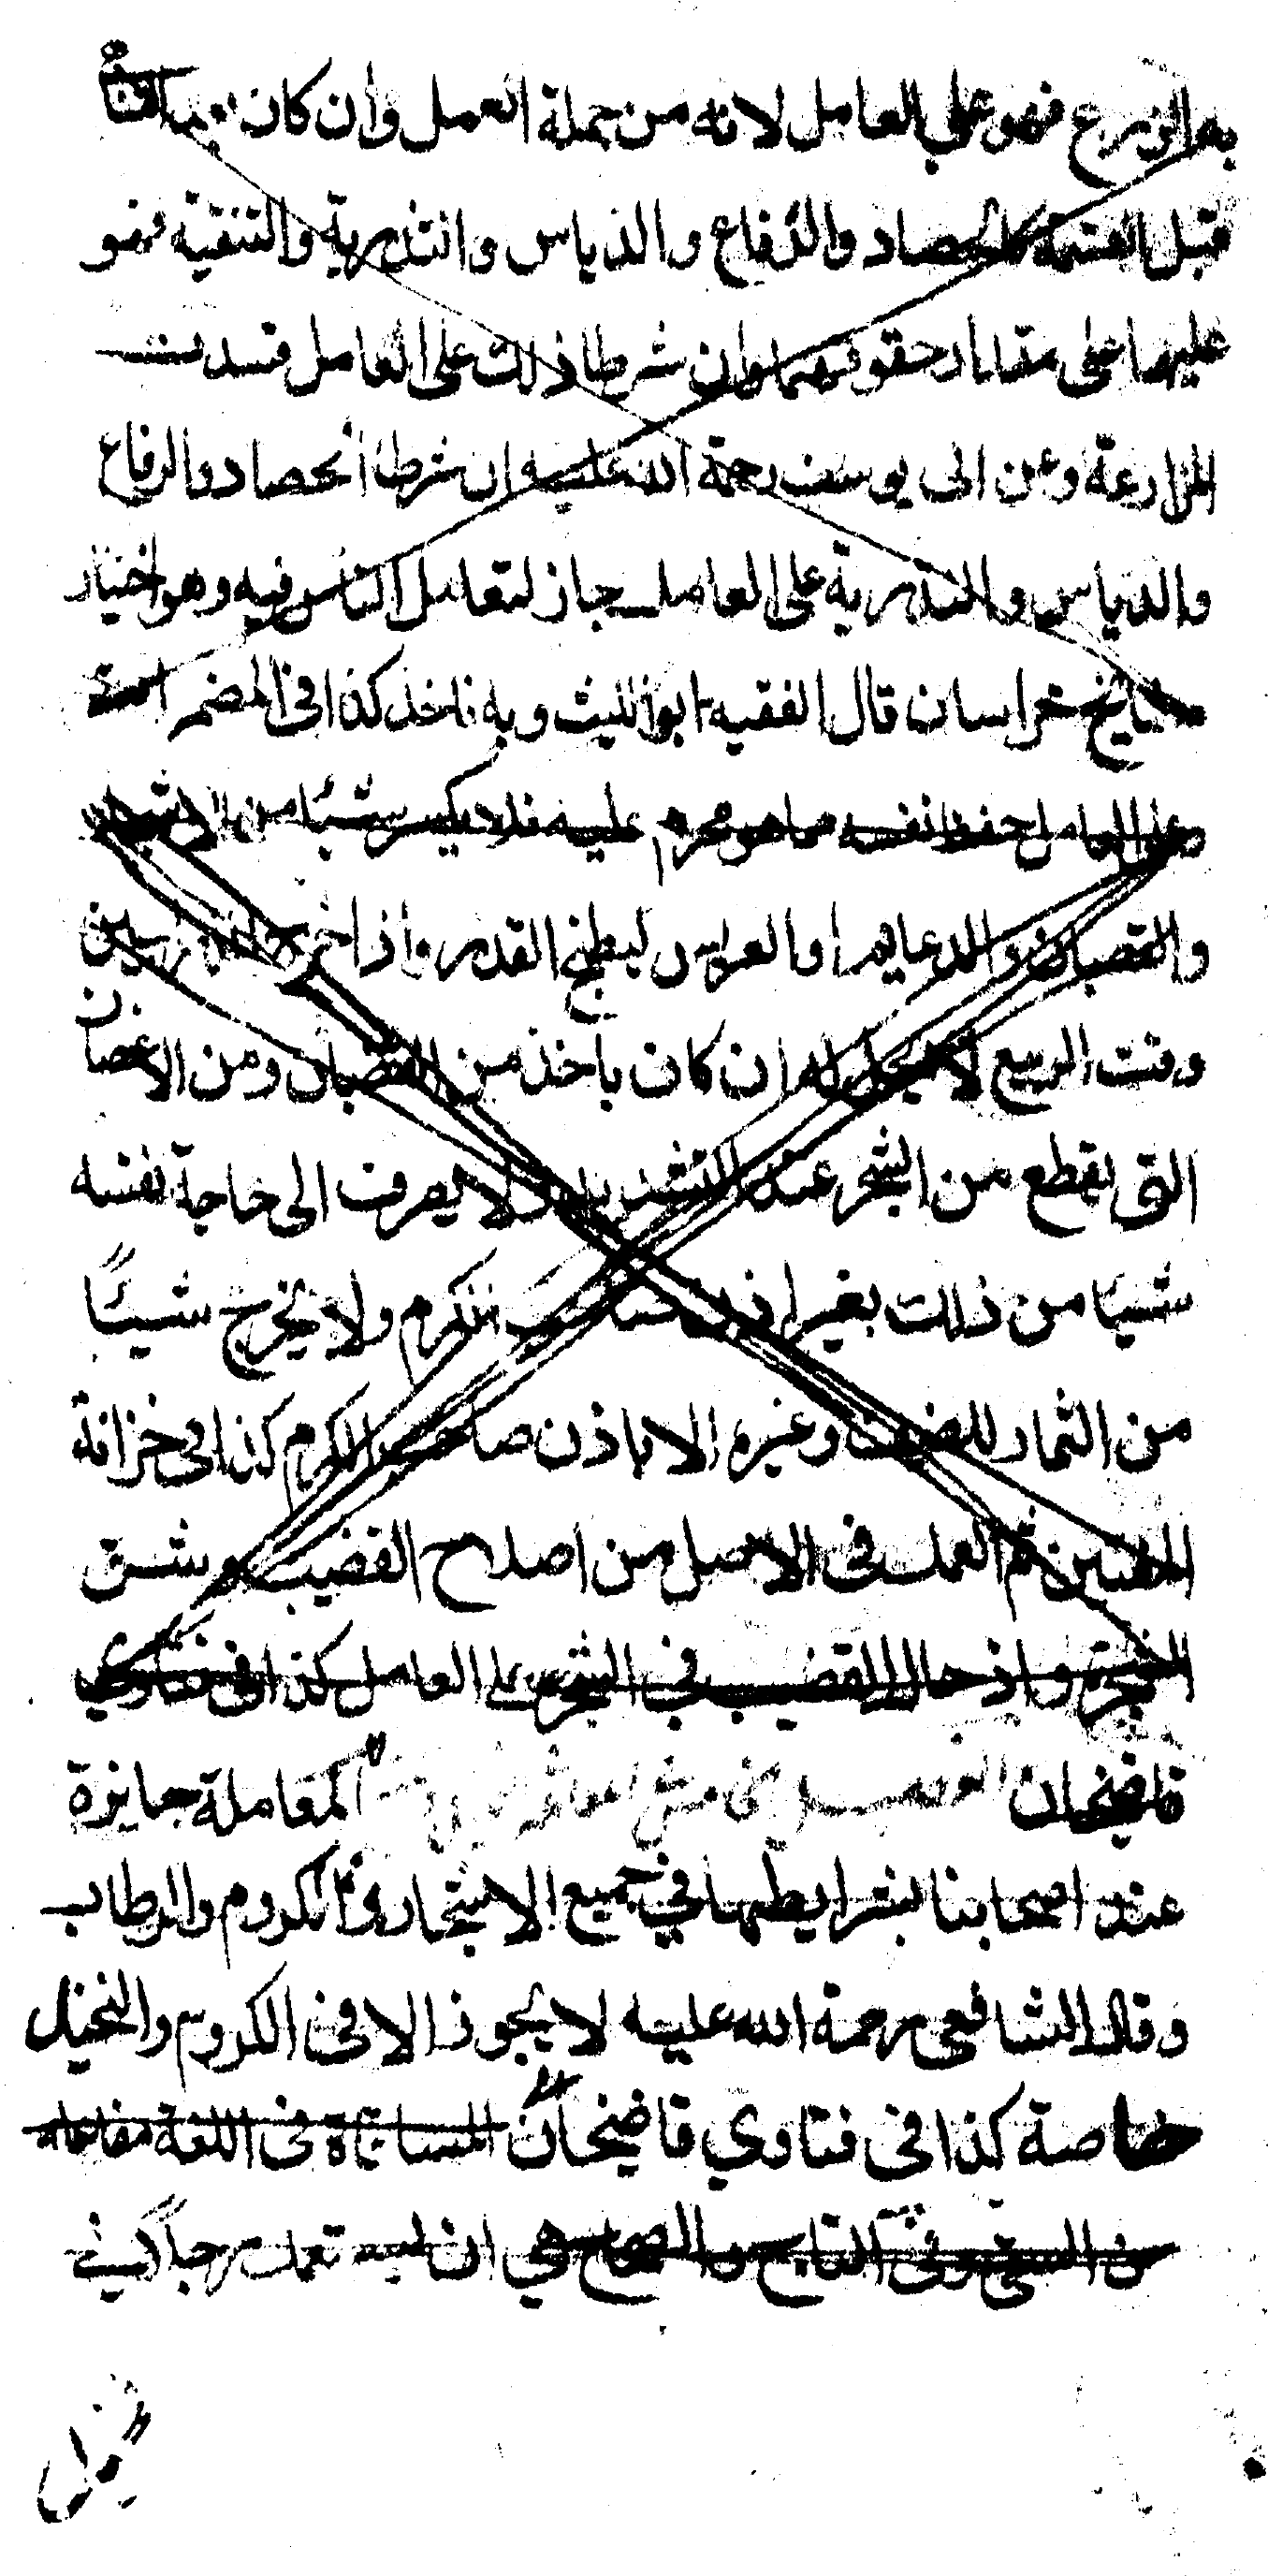 به الزرع فهو على العامل لانه من جملة العمل وان كان بعد
قبل القسمة كالحصاد والرفاع والدياس والتذرية والتنقية فهو
عليهما على مقدار حقوقهما وان شرطا ذلك على العامل فسدت
المزارعة وعن ابى يوسف رحمة الله عليه ان شرط الحصاد والرفاع
والدياس والتذرية على العامل جاز لتعامل الناس فيه وهو اختيار
مشايخ خراسان قال الفقيه ابو الليث وبه ناخذ كذا فى المضمرات
وعلى العامل حفظ نفسه مما هو محرم عليه فلا يكسر شيئا من الاشجار
والقضبان والدعايم او العريش ليطبخ القدر واذا
وقت الربيع لا يحل له ان كان ياخذ من القضبان ومن الاغصان
التى تقطع من الشجر عند ولا يصرف الى حاجة نفسه
شيئا من ذلك بغير اذن صاحب الكرم ولا يخرج شيئًا
من الثمار للضيف وغيره الا باذن صاحب الكرم كذا فى خزانة
المفتين ثم العمل فى الاصل من اصلاح القضيب وشق
الشجرة وادخال القضيب فى الشجر على العامل كذا فى فتاوي
قاضيخان المعاملة جايزة
عند اصحابنا بشرايطها في جميع الاشجار وفى الكروم والرطاب
وقال الشافعى رحمة الله عليه لا يجوز الا فى الكروم والنخيل
خاصة كذا فى فتاوي قاضيخان المساقاة فى اللغة مفاعلة
من السقى وفى التاج والصحاح هي ان يستعمل رجلا في